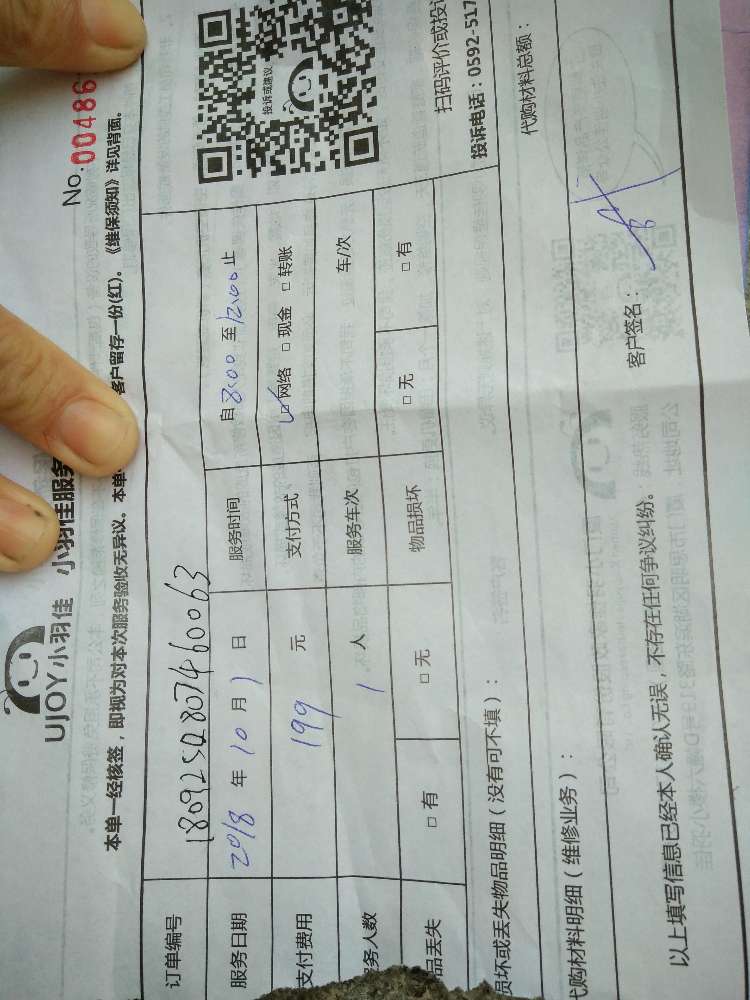 UJOY小羽佳 小羽佳服务
No. 00486
本单一经核签，即视为对本次服务验收无异议。本单 客户留存一份(红)。《维保须知》详见背面。
订单编号 180925Q807460063
服务日期 2018 年 10 月 1 日 服务时间 自 8:00 至 12:00 止
支付费用 199 元 支付方式 ☑ 网络 □ 现金 □ 转账
务人数 1 人 服务车次 车/次
品丢失 □ 有 □ 无 物品损坏 □ 无 □ 有
投诉或建议
扫码评价或投诉
投诉电话：0592-517
损坏或丢失物品明细（没有可不填）：
代购材料明细（维修业务）：
代购材料总额：
以上填写信息已经本人确认无误，不存在任何争议纠纷。
客户签名：